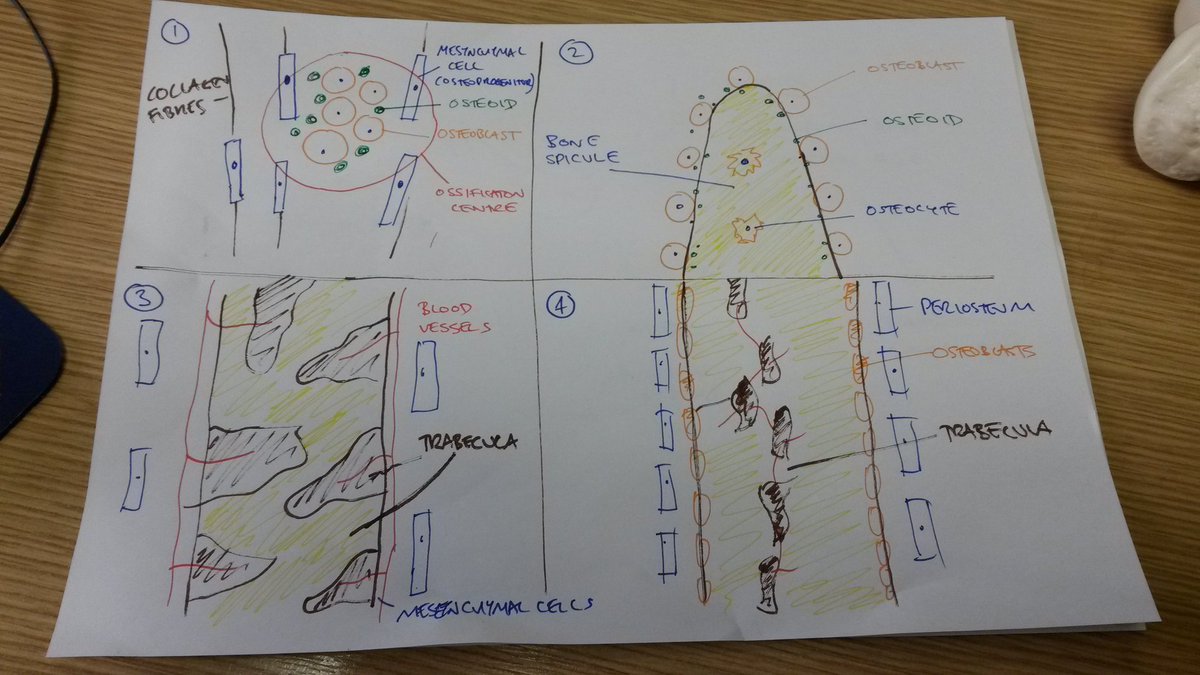 1
COLLAGEN
FIBRES
MESYNCHYMAL
CELL
(OSTEOPROGENITOR)
OSTEOID
OSTEOBLAST
OSSIFICATON
CENTRE
2
OSTEOBLAST
OSTEOID
BONE
SPICULE
OSTEOCYTE
3
BLOOD
VESSELS
TRABECULA
MESENCHYMAL CELLS
4
PERIOSTEUM
OSTEOBLASTS
TRABECULA